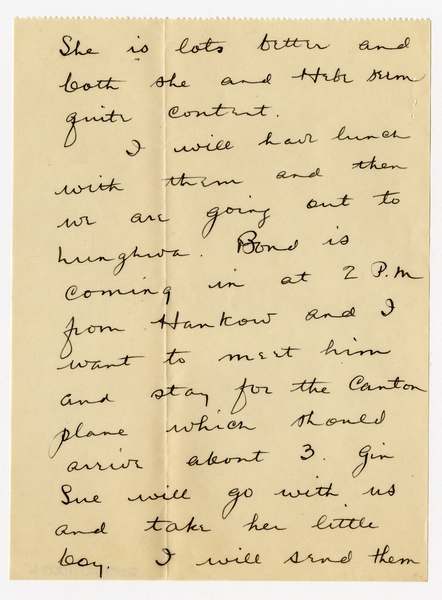 She is lots better and
both she and Hebe seem
quite content.
I will have lunch
with them and then
we are going out to
Lunghwa. Bond is
coming in at 2 P.M
from Hankow and I
want to meet him
and stay for the Canton
plane which should
arrive about 3. Gin
Sue will go with us
and take her little
boy. I will send them